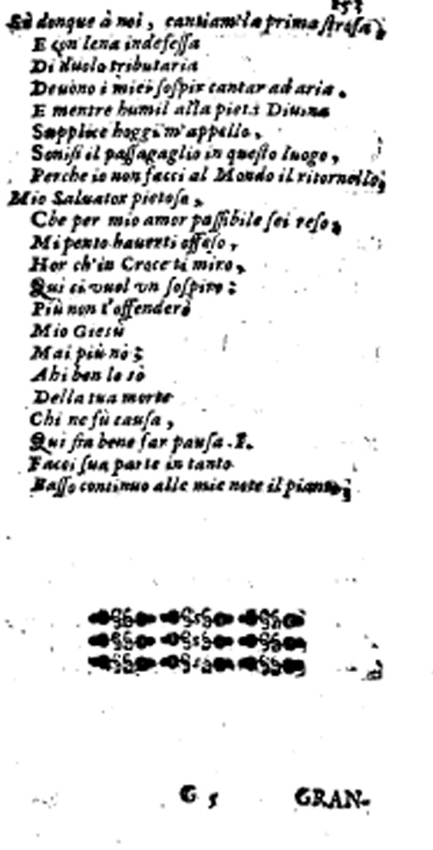 153
Sù donque à noi, cantiam la prima strofa,
E con lena indefessa
Di duolo tributaria
Deuono i miei sospir cantar ad aria.
E mentre humil alla pietà Diuina
Supplice hoggi m'appello,
Sonisi il passagaglio in questo luogo,
Perche io non facci al Mondo il ritornello;
Mio Saluator pietoso,
Che per mio amor passibile sei reso,
Mi pento hauerti offeso,
Hor ch'in Croce ti miro,
Qui ci vuol vn sospiro:
Più non t'offenderò
Mio Giesù
Mai più nò;
Ahi ben lo sò
Della tua morte
Chi ne fù causa,
Qui sia bene far pausa.
Facci sua parte in tanto
Basso continuo alle mie note il pianto;
G 5 GRAN-